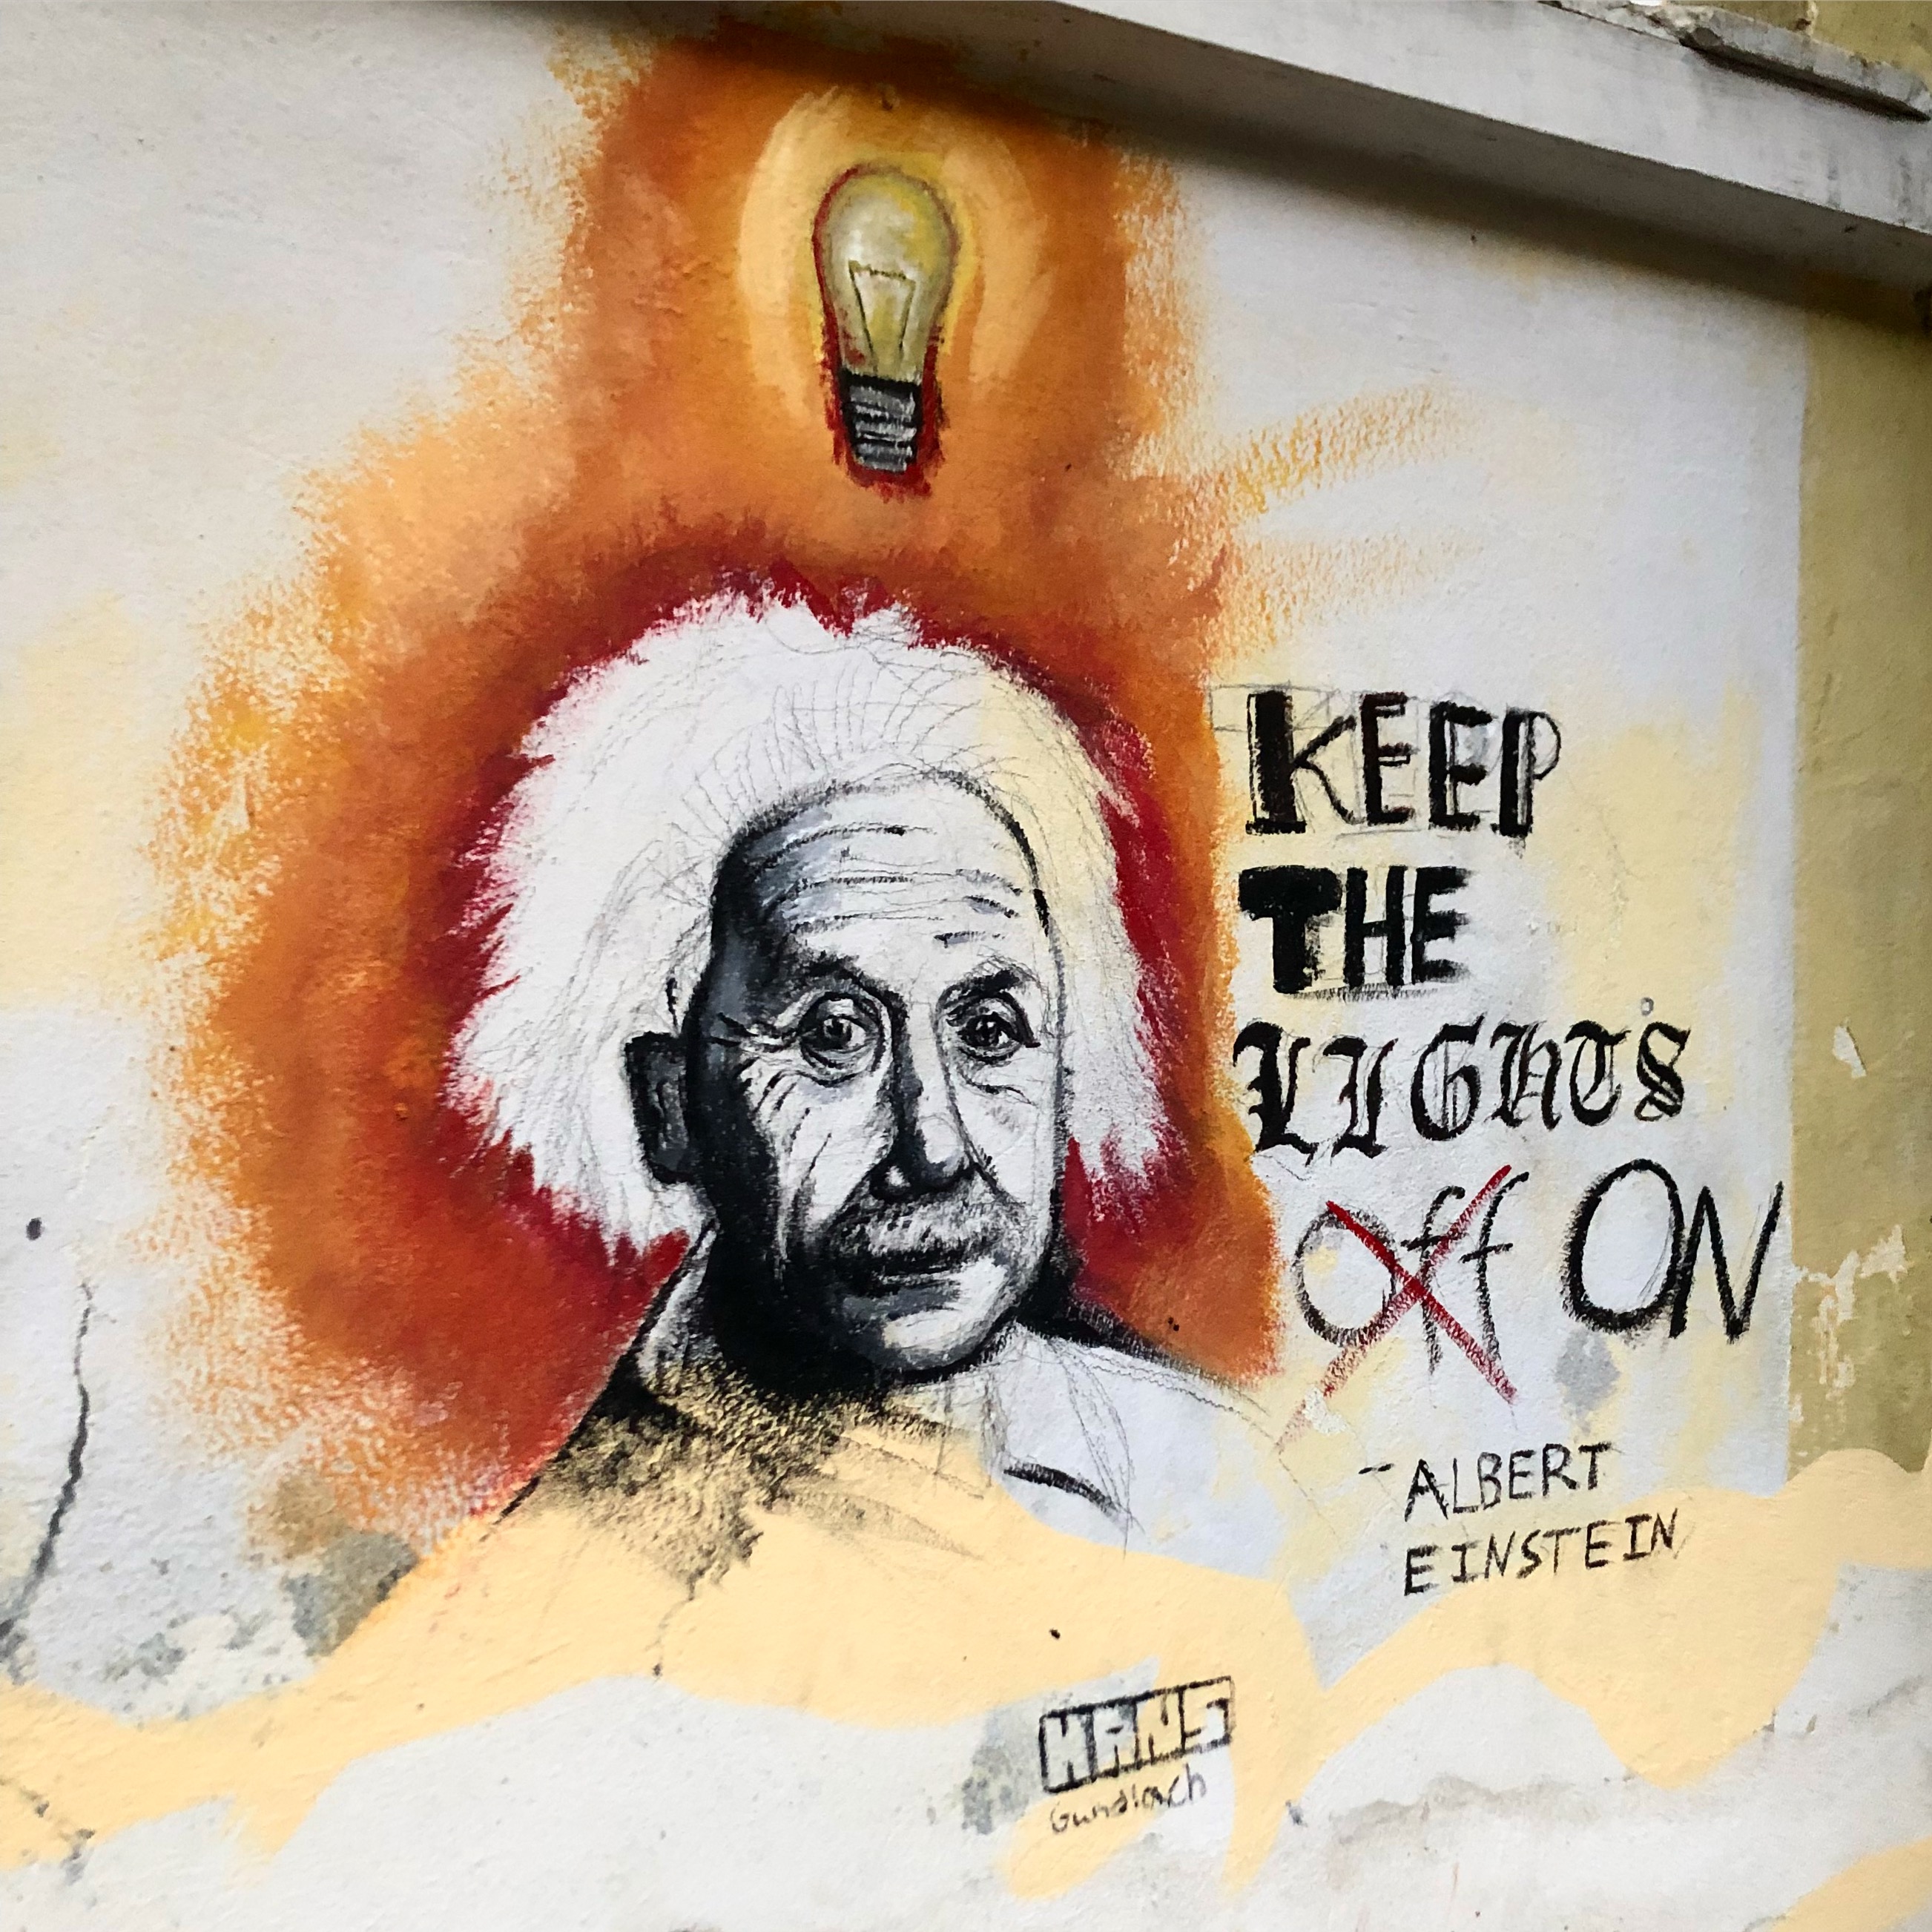 KEEP
THE
LIGHTS
Off ON
- ALBERT
EINSTEIN
HANS
Gundlach